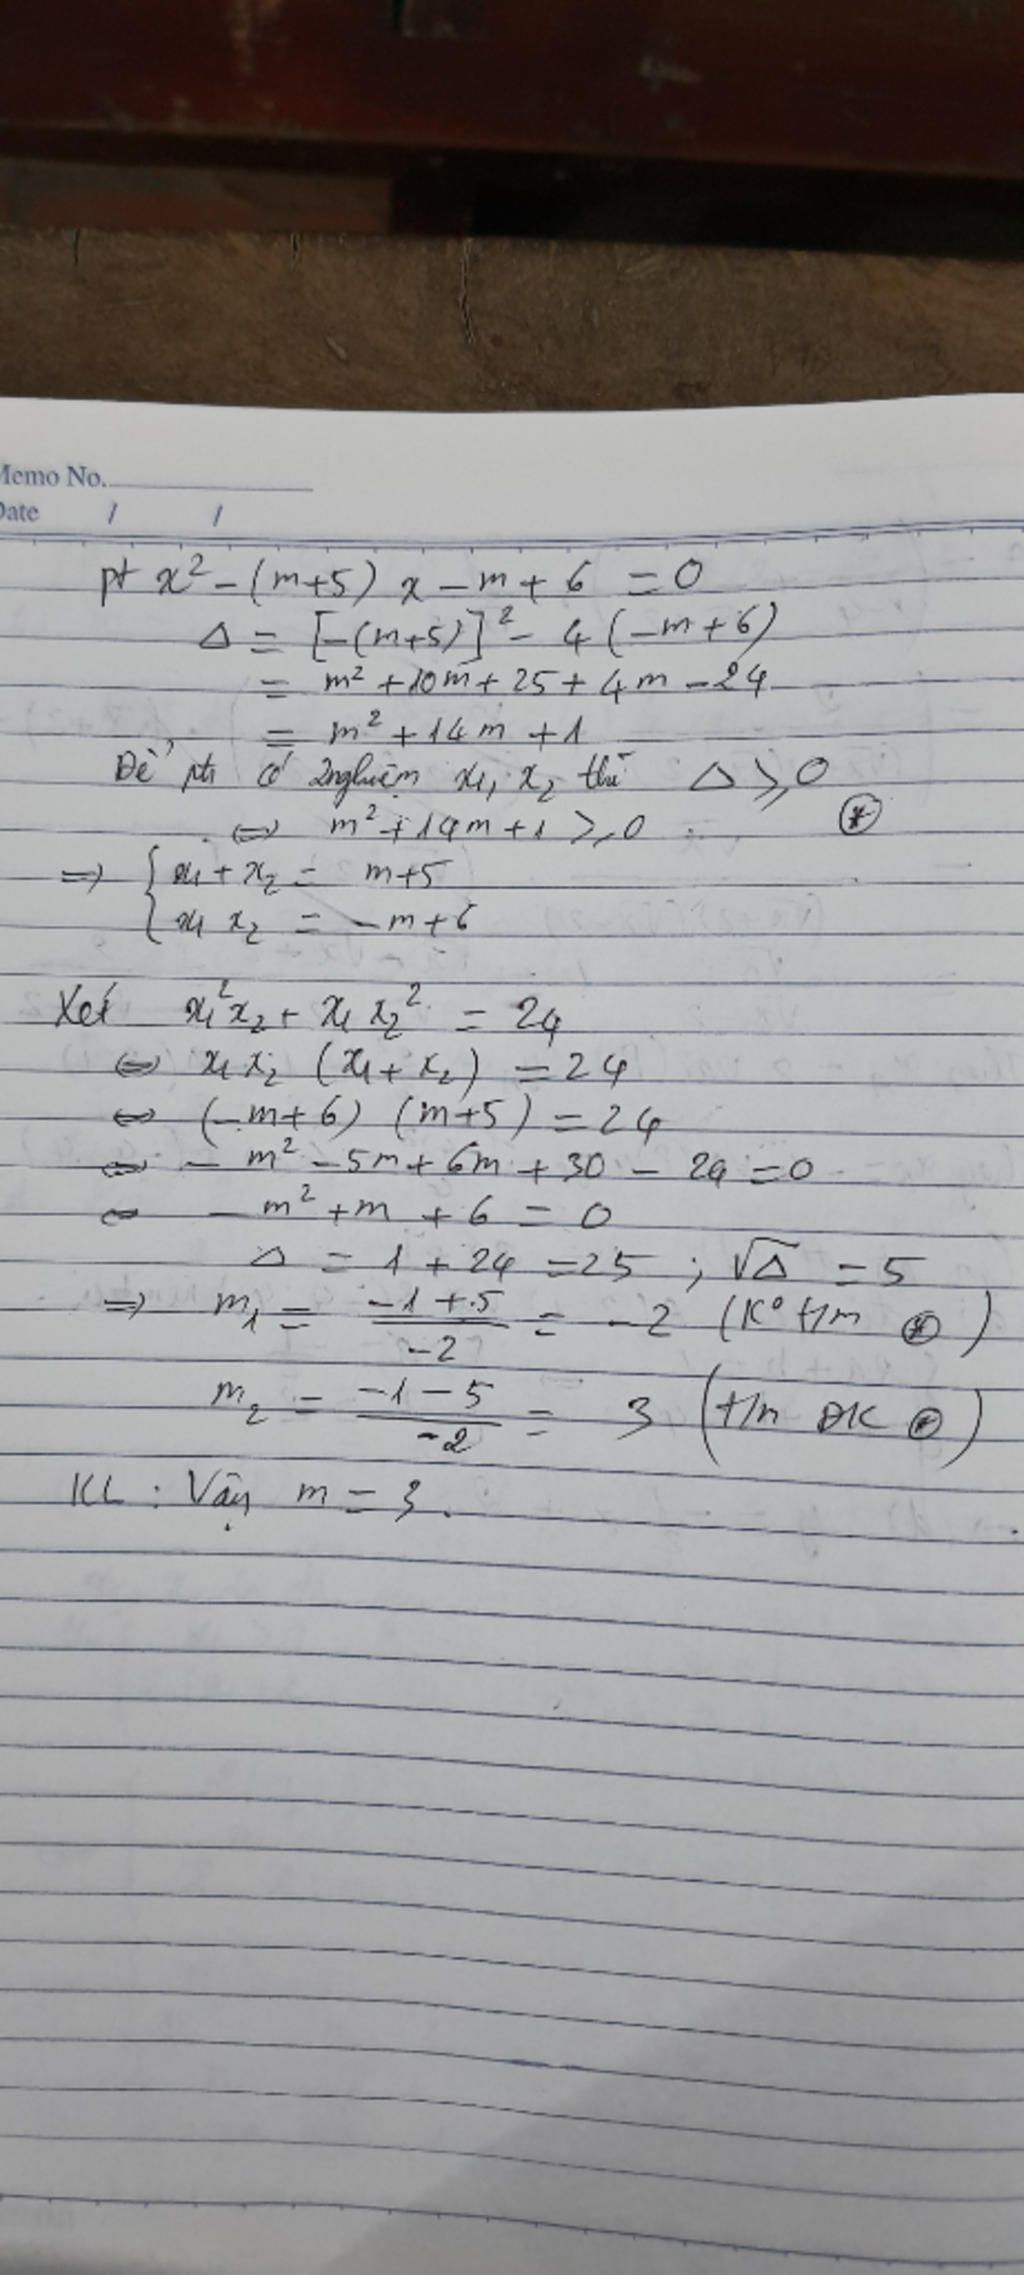 Memo No.
Date / /
pt x² - (m+5) x - m + 6 = 0
Δ = [-(m+5)]² - 4 (-m+6)
= m² + 10m + 25 + 4m - 24
= m² + 14m + 1
Để pt có 2 nghiệm x₁, x₂ thì Δ ≥ 0
⇔ m² + 14m + 1 ≥ 0 (*)
⇒ { x₁ + x₂ = m+5
x₁ x₂ = -m+6
Xét x₁² x₂ + x₁ x₂² = 24
⇔ x₁ x₂ (x₁ + x₂) = 24
⇔ (-m+6) (m+5) = 24
⇔ - m² - 5m + 6m + 30 - 24 = 0
⇔ - m² + m + 6 = 0
Δ = 1 + 24 = 25 ; √Δ = 5
⇒ m₁ = (-1+5)/(-2) = -2 (K° t/m (*))
m₂ = (-1-5)/(-2) = 3 (t/m ĐK (*))
KL : Vậy m = 3.